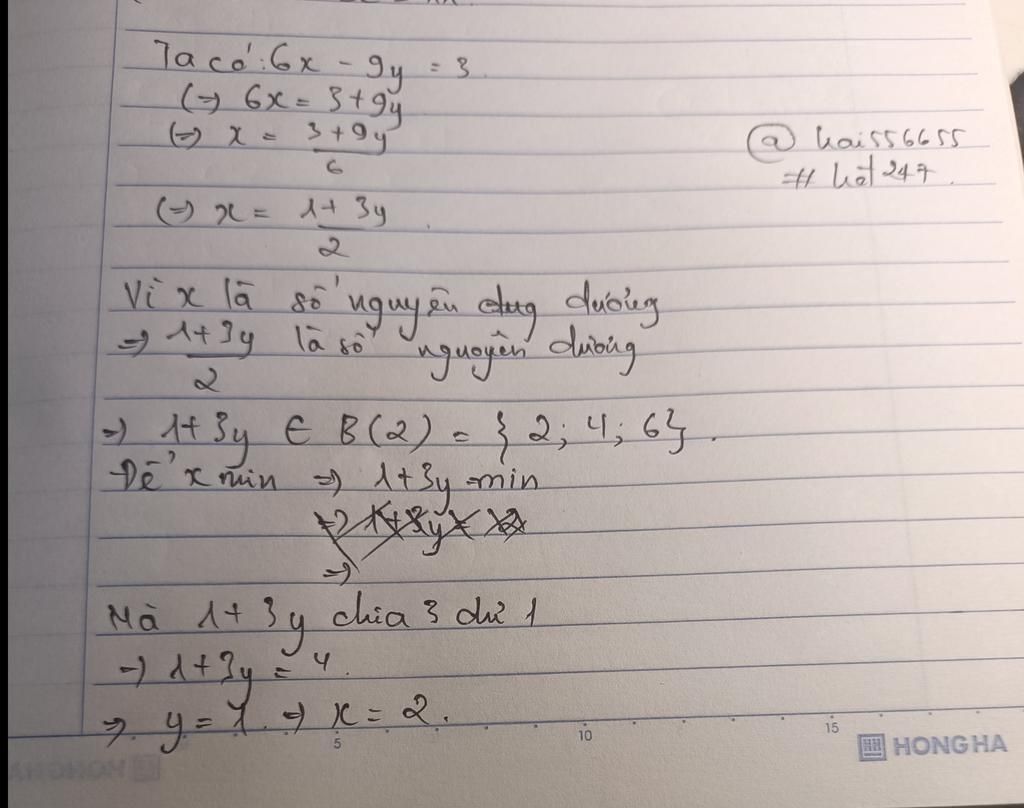 Ta có: 6x - 9y = 3
(=) 6x = 3+9y
(=) x = 3+9y / 6
@ hai556655
# hot247.
(=) x = 1+3y / 2
Vì x là số nguyên dương
=) 1+3y / 2 là số nguyên dương
=) 1+3y ∈ B(2) = {2; 4; 6}.
Để x min =) 1+3y min
=)
Mà 1+3y chia 3 dư 1
=) 1+3y = 4.
=) y = 1. =) x = 2.
5 10 15
HONG HA